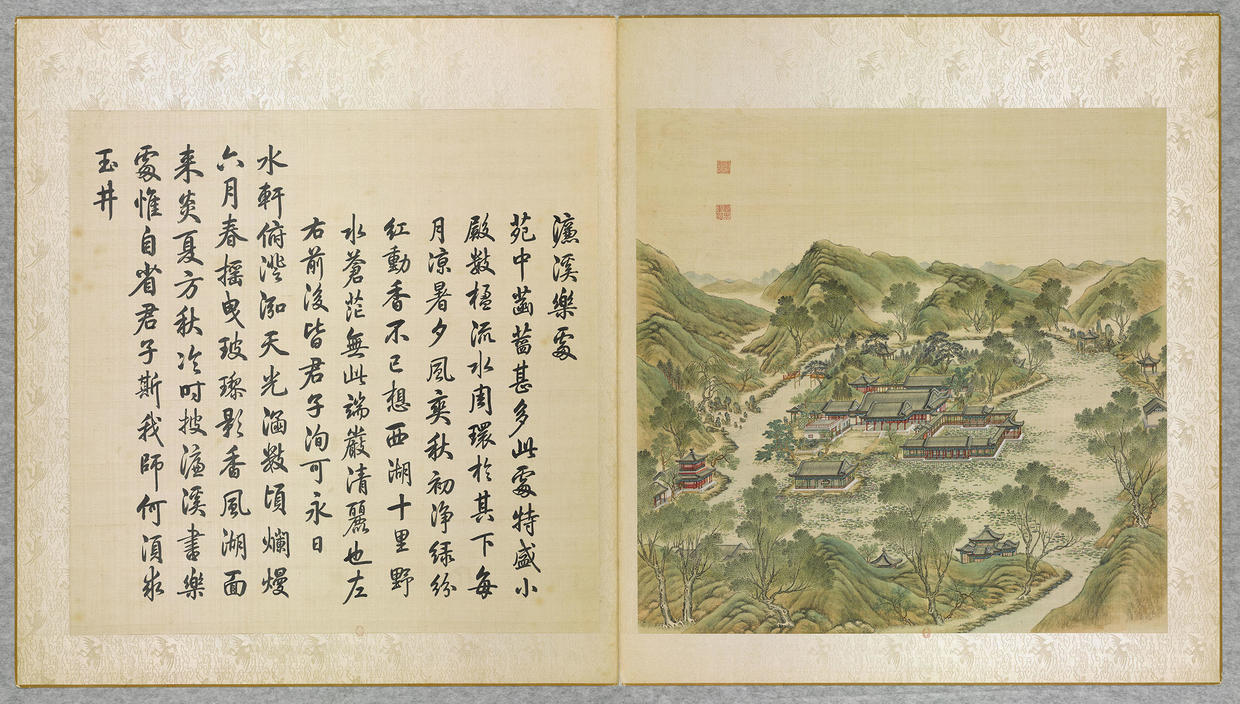 濂溪樂處
苑中菡萏甚多此處特盛小
殿數楹流水周環於其下每
月凉暑夕風爽秋初淨綠紛
紅動香不已想西湖十里野
水蒼茫無此端嚴清麗也左
右前後皆君子洵可永日
水軒俯澄泓天光涵數頃爛熳
六月春搖曳玻瓈影香風湖面
来炎夏方秋冷时披濂溪書樂
處惟自省君子斯我師何須求
玉井